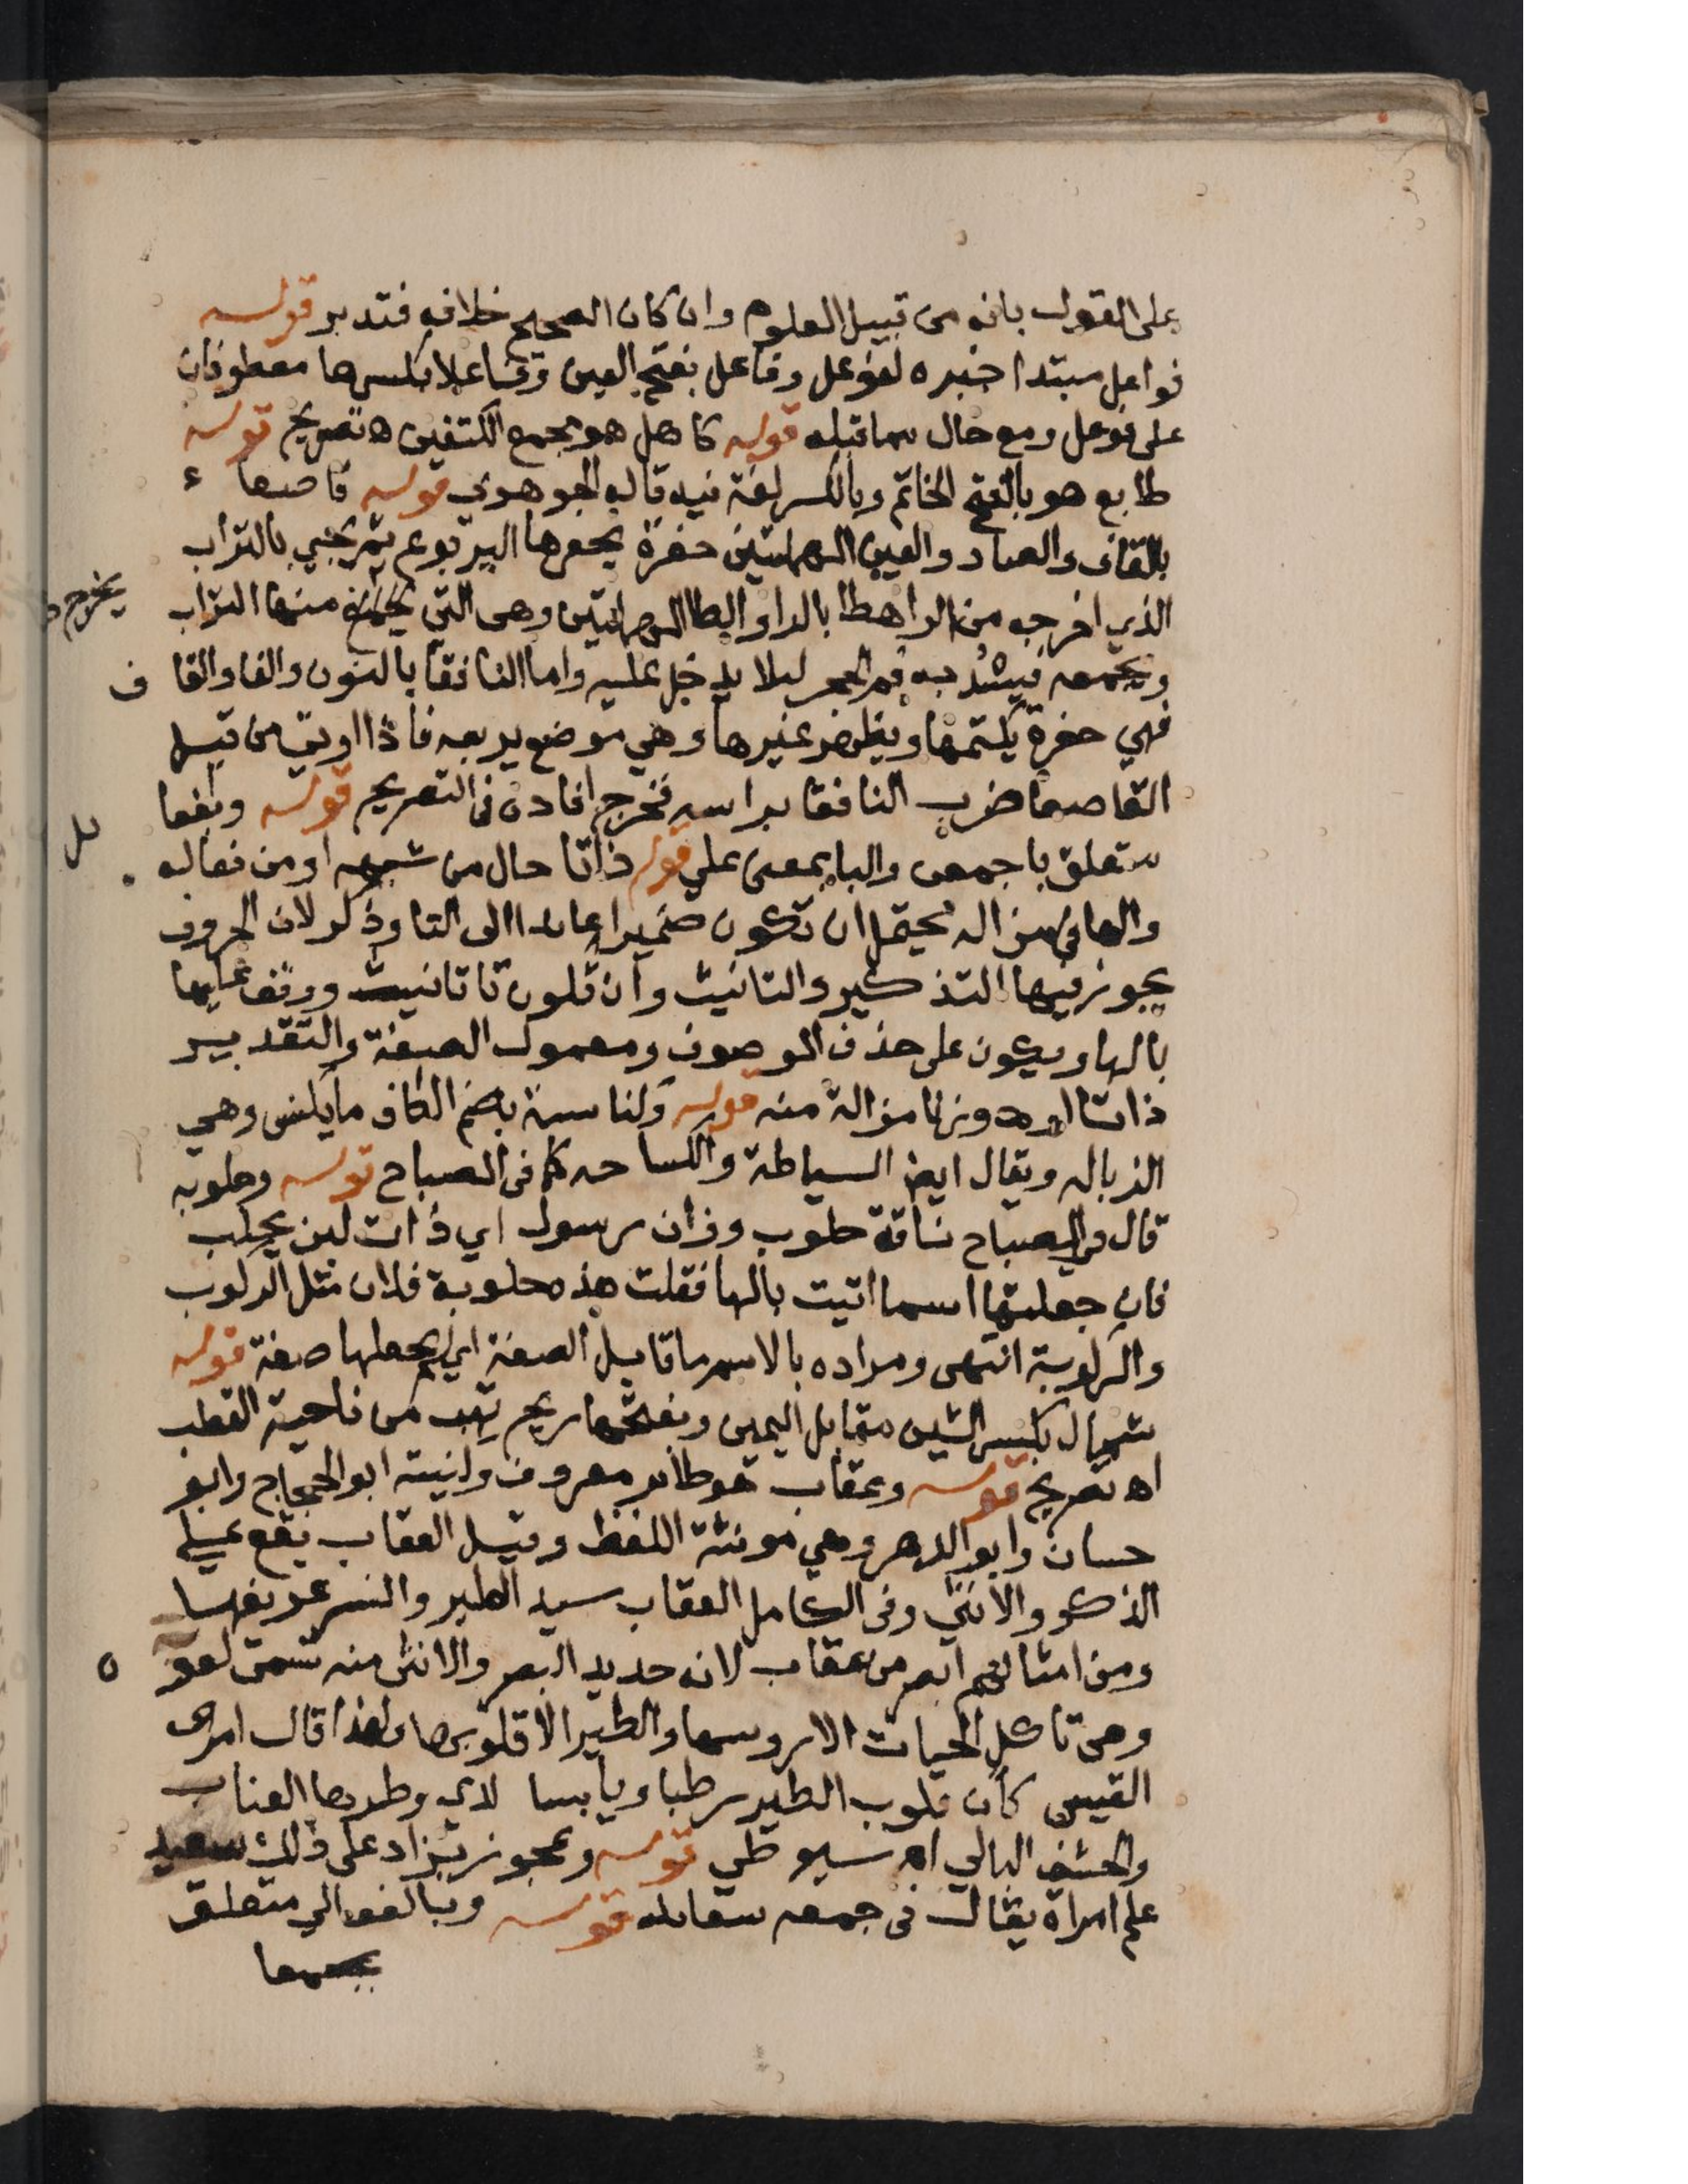 على القول بانه من قبيل العلوم وان كان الصحيح خلافه فتدبر قوله
فواعل مبتدا خبره لفوعل وفاعل بفتح العين وفاعلا بكسرها معطوفان
على فوعل ومع حال مما قبله قوله كاهل هو مجمع الكتفين اه تصريح قوله
طابع هو بالفتح الخاتم وبالكسر لغة فيه قاله الجوهري قوله قاصعا ء
بالقاف والصاد والعين المهملتين حفرة يحفرها اليربوع ثم يجي بالتراب
الذي اخرجه من الراهطا بالرا والطا المهملتين وهي التي يخرج منها التراب
يخرج
ويجمعه فيشد به فم الجحر ليلا يدخل عليه واما النافقا بالنون والفا والقا ف
فهي حفرة يكتمها ويظهر غيرها وهي موضع يربعه فاذا اوتي من قبل
القاصعا ضرب النافقا براسه فخرج افاده في التصريح قوله وبفعا
ئل
متعلق باجمعن والبا بمعنى على قوله ذاتا حال من شبهه او من فعاله
والها في مزاله يحتمل ان تكون ضميرا عايدا الى التا وذكر لان الحروف
يجوز فيها التذكير والتانيث وان تكون تا تانيث ووقف عليها
بالها ويكون على حذف الموصوف ومعمول الصفة والتقدير
ذاتا او دونها مزالة منه قوله وكناسة بضم الكاف ما يكنس وهي
الزباله ويقال ايض السباطة والكساحه كما في المصباح قوله وحلوبه
قال في المصباح ناقة حلوب وزان رسول اي ذات لبن يحلب
فان جعلتها اسما اتيت بالها فقلت هذه حلوبة فلان مثل الركوب
والركوبة انتهى ومراده بالاسم ما قابل الصفة اي لم يجعلها صفة قوله
شمال بكسر الشين مقابل اليمين وبفتحها ريح تهب من ناحية القطب
اه تصريح قوله وعقاب هو طائر معروف وكنيته ابو الحجاج وابو
حسان وابو الدهر وهي مونثة اللفظ وقيل العقاب يقع على
الذكر والانثى وفي الكامل العقاب سيد الطير والنسر عريفها
ومن امثالهم ابصر من عقاب لانه حديد البصر والانثى منه تسمى لقو ه
وهي تاكل الحيات الا روسها والطير الا قلوبها ولهذا قال امرى
القيس كان قلوب الطير رطبا ويابسا لدي وكرها العناب
والحشف البالي اه سيوطي قوله وعجوز يزاد على ذلك سعيد
علم امراة يقال في جمعه سعايد قوله وبالفعالي متعلق
بجمعا